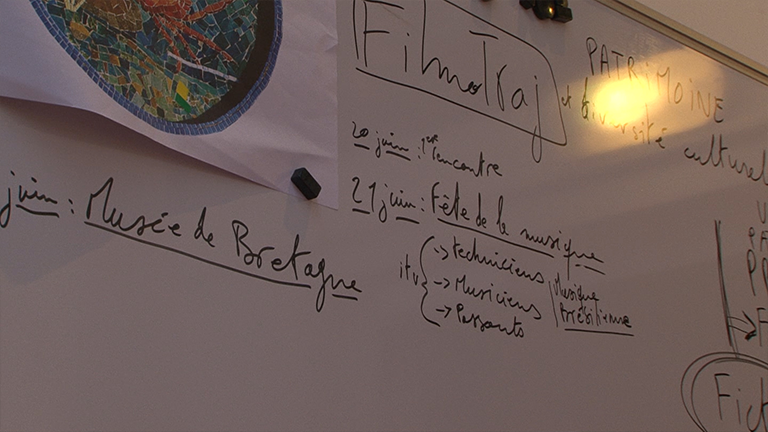 FilmoTraj
PATRIMOINE
et diversité culturel
20 juin : 1ère rencontre
21 juin : Fête de la musique
itv
-> Techniciens
-> Musiciens
-> Passants
Musique
Brésilienne
juin : Musée de Bretagne
Fich